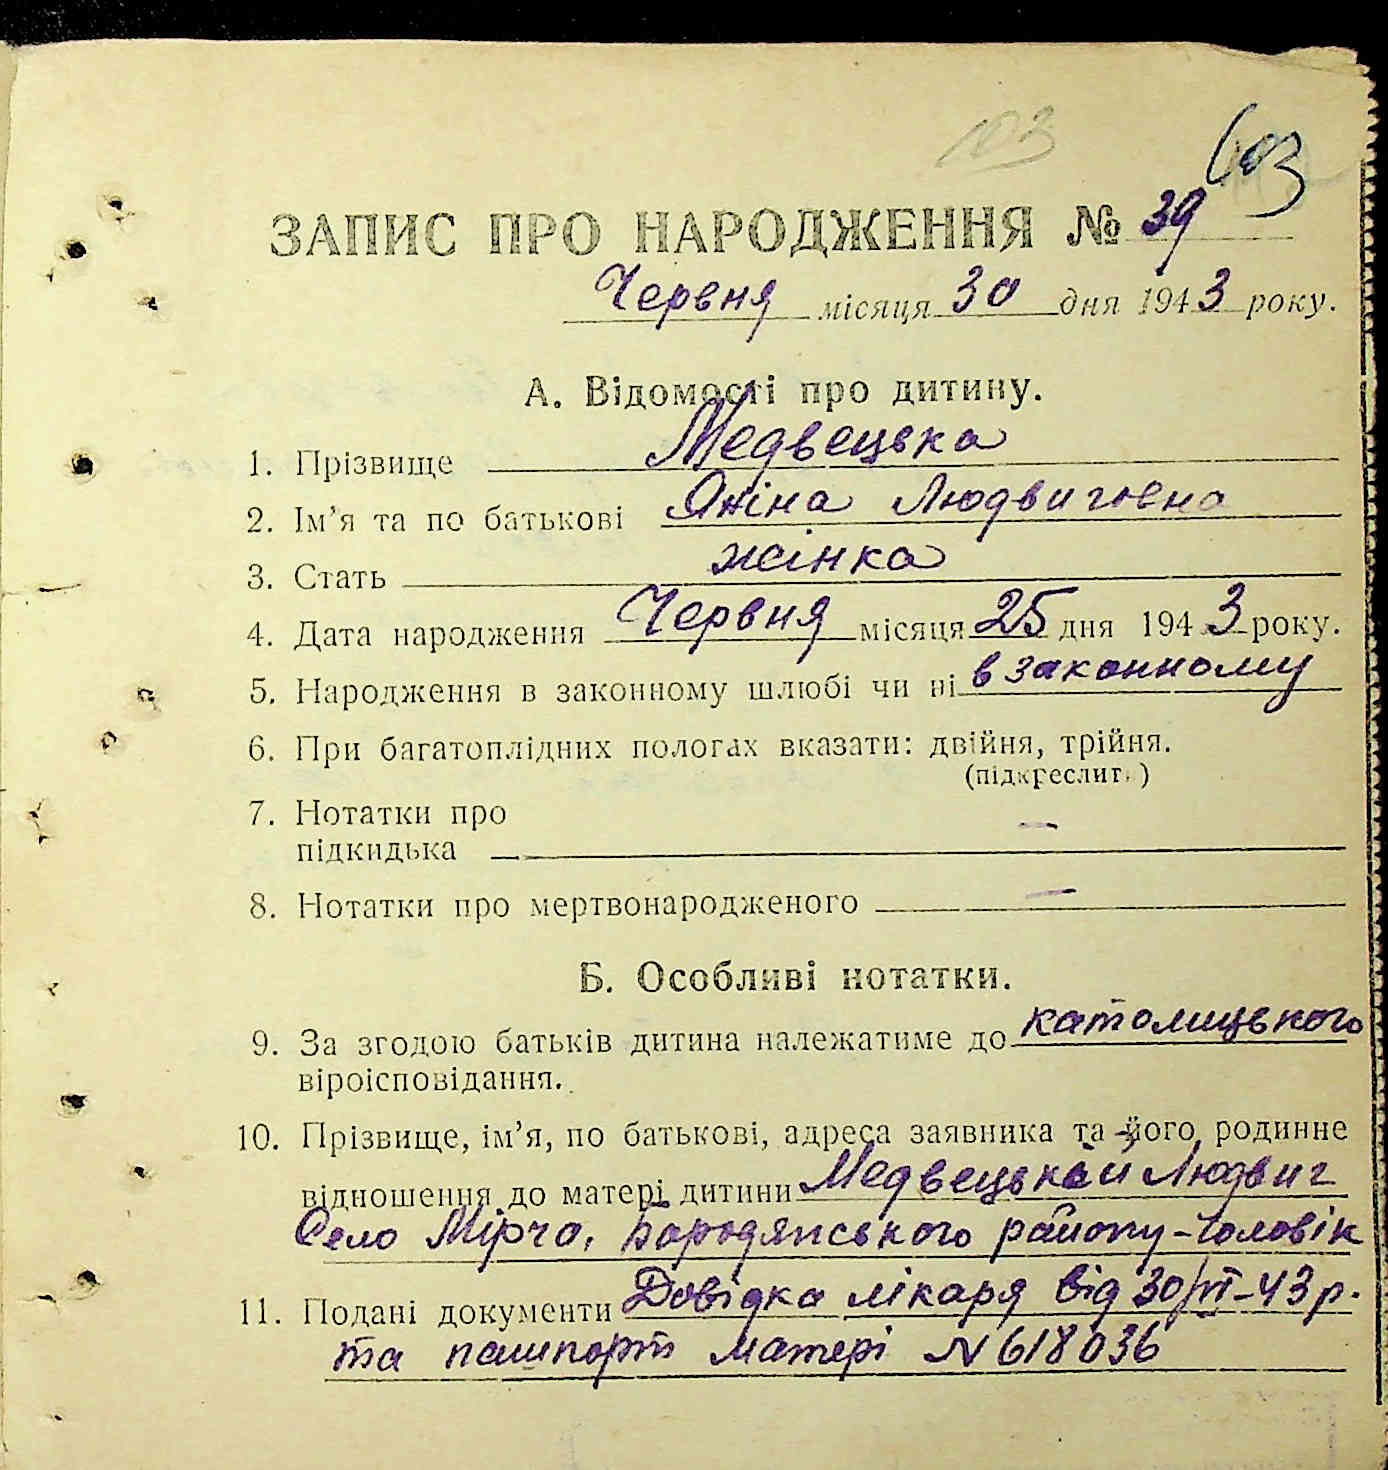 103
103
ЗАПИС ПРО НАРОДЖЕННЯ № 39
Червня місяця 30 дня 1943 року.
А. Відомості про дитину.
1. Прізвище Медвецька
2. Ім'я та по батькові Яніна Людвиговна
3. Стать жінка
4. Дата народження Червня місяця 25 дня 1943 року.
5. Народження в законному шлюбі чи ні в законному
6. При багатоплідних пологах вказати: двійня, трійня.
(підкреслить)
7. Нотатки про
підкидька —
8. Нотатки про мертвонародженого —
Б. Особливі нотатки.
9. За згодою батьків дитина належатиме до католицького
віроісповідання.
10. Прізвище, ім'я, по батькові, адреса заявника та його родинне
відношення до матері дитини Медвецький Людвиг
Село Мірча, Бородянського району - чоловік
11. Подані документи Довідка лікаря від 30/VI-43 р.
та пашпорт матері N 618036